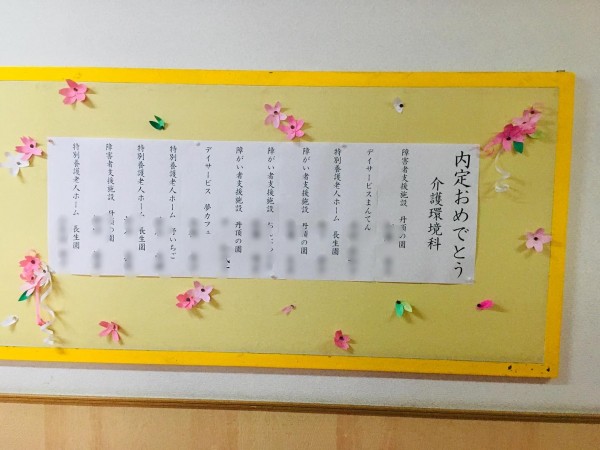 内定おめでとう
介護環境科
障害者支援施設 丹頂の園
デイサービスまんてん
特別養護老人ホーム 長生園
障がい者支援施設 丹頂の園
障がい者支援施設
障がい者支援施設 丹頂の園
デイサービス 夢カフェ
特別養護老人ホーム いちご
特別養護老人ホーム 長生園
障害者支援施設 丹頂の園
特別養護老人ホーム 長生園